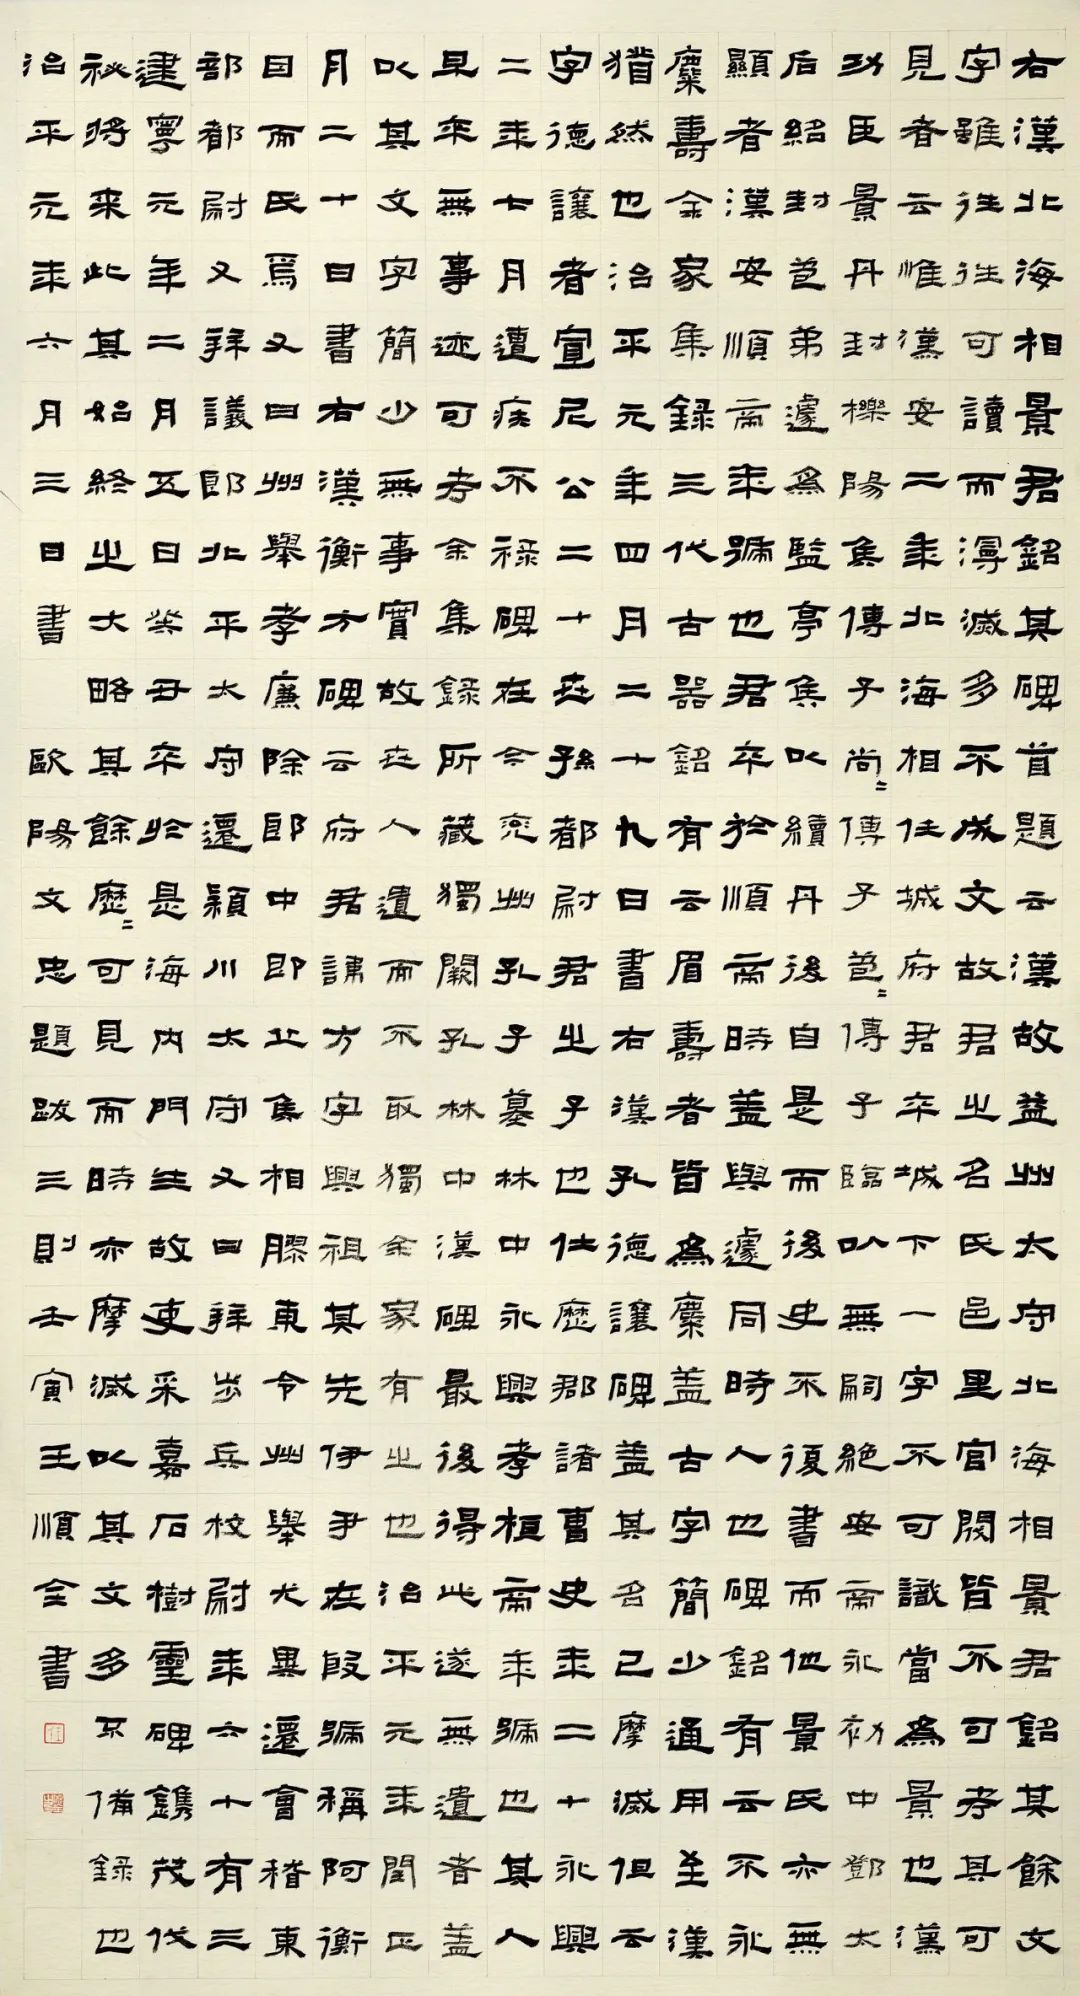 右漢北海相景君銘其碑首題云漢故益州太守北海相景君銘其餘文
字雖往往可讀而漫滅多不成文故君之名氏邑里官閥皆不可考其可
見者云惟漢安二年北海相任城府君卒城下一字不可識當為景也漢
功臣景丹封櫟陽侯傳子尚〻傳子苞〻傳子臨以無嗣絕安帝永初中鄧太
后紹封苞弟遽為監亭侯以續丹後自是而後史不復書而他景氏亦無
顯者漢安順帝年號也君卒於順帝時蓋與遽同時人也碑銘有云不永
麋壽余家集錄三代古器銘有云眉壽者皆為麋蓋古字簡少通用至漢
猶然也治平元年四月二十九日書右漢孔德讓碑蓋其名已摩滅但云
字德讓者宣尼公二十世孫都尉君之子也仕歷郡諸曹史年二十永興
二年七月遭疾不祿碑在今兗州孔子墓林中永興孝桓帝年號也其人
早卒無事迹可考余集錄所藏獨闕孔林中漢碑最後得此遂無遺者蓋
以其文字簡少無事實故世人遺而不取獨余家有之也治平元年閏正
月二十日書右漢衡方碑云府君諱方字興祖其先伊尹在殷號稱阿衡
因而氏焉又曰州舉孝廉除郎中即丘侯相膠東令州舉尤異遷會稽東
部都尉又拜議郎北平太守遷潁川太守又曰拜步兵校尉年六十有三
建寧元年二月五日癸丑卒於是海內門生故吏采嘉石樹靈碑鐫茂伐
秘將來此其始終之大略其餘歷〻可見而時亦摩滅以其文多不備錄也
治平元年六月三日書 歐陽文忠題跋三則壬寅王順全書